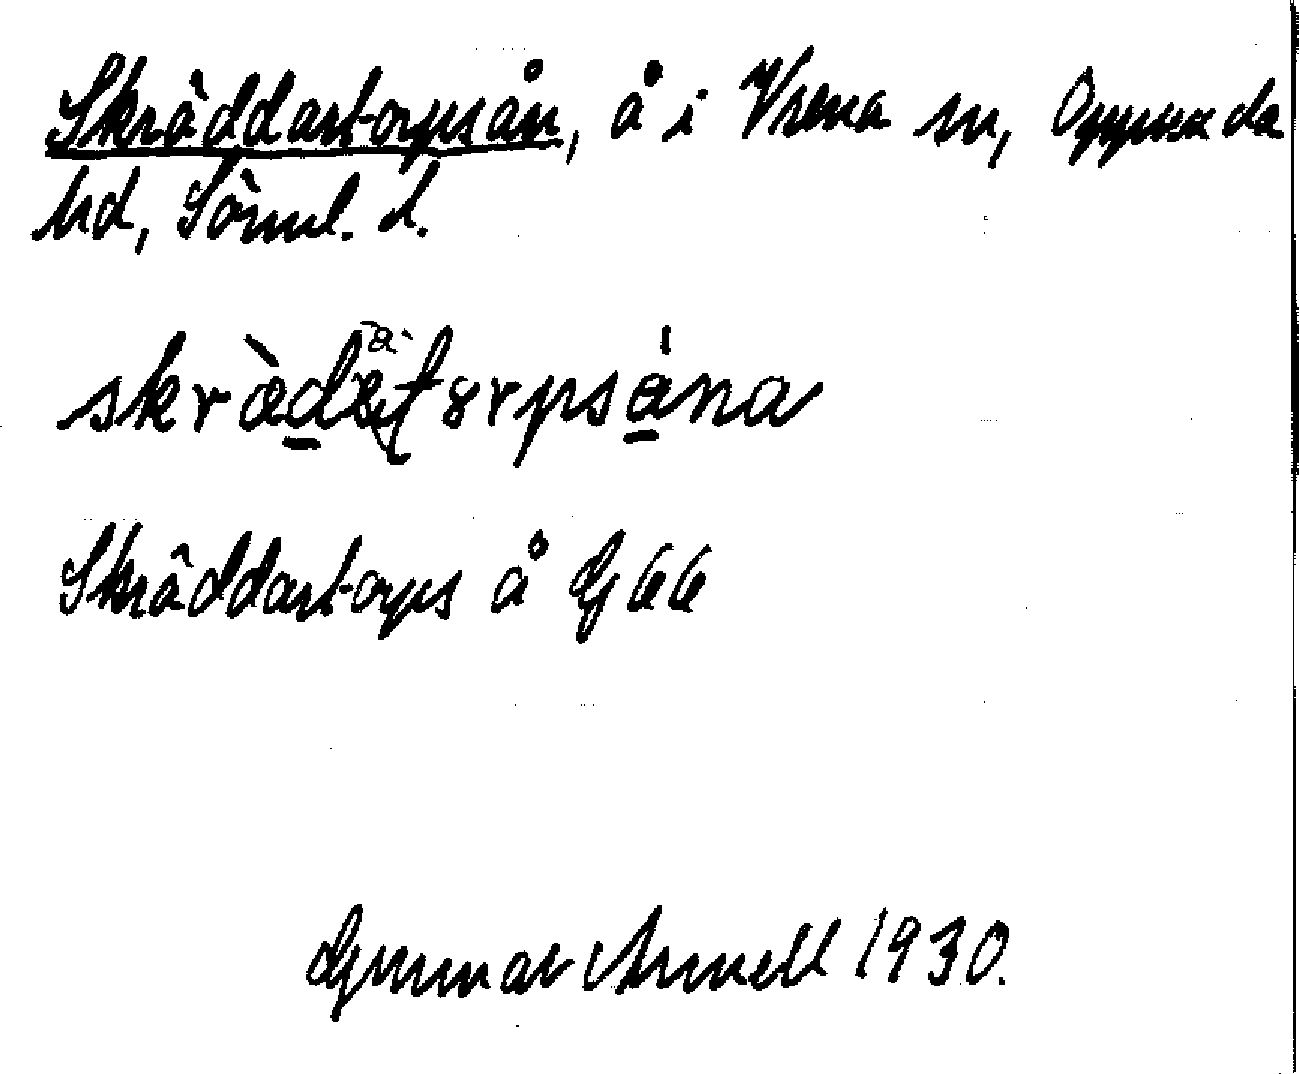 Skräddartorpsån, å i Vrena sn, Oppunda
hd, Söml. d.
skrædat𐑪rpsåna
Skräddartorps å G 66
Gunnar Arnell 1930.